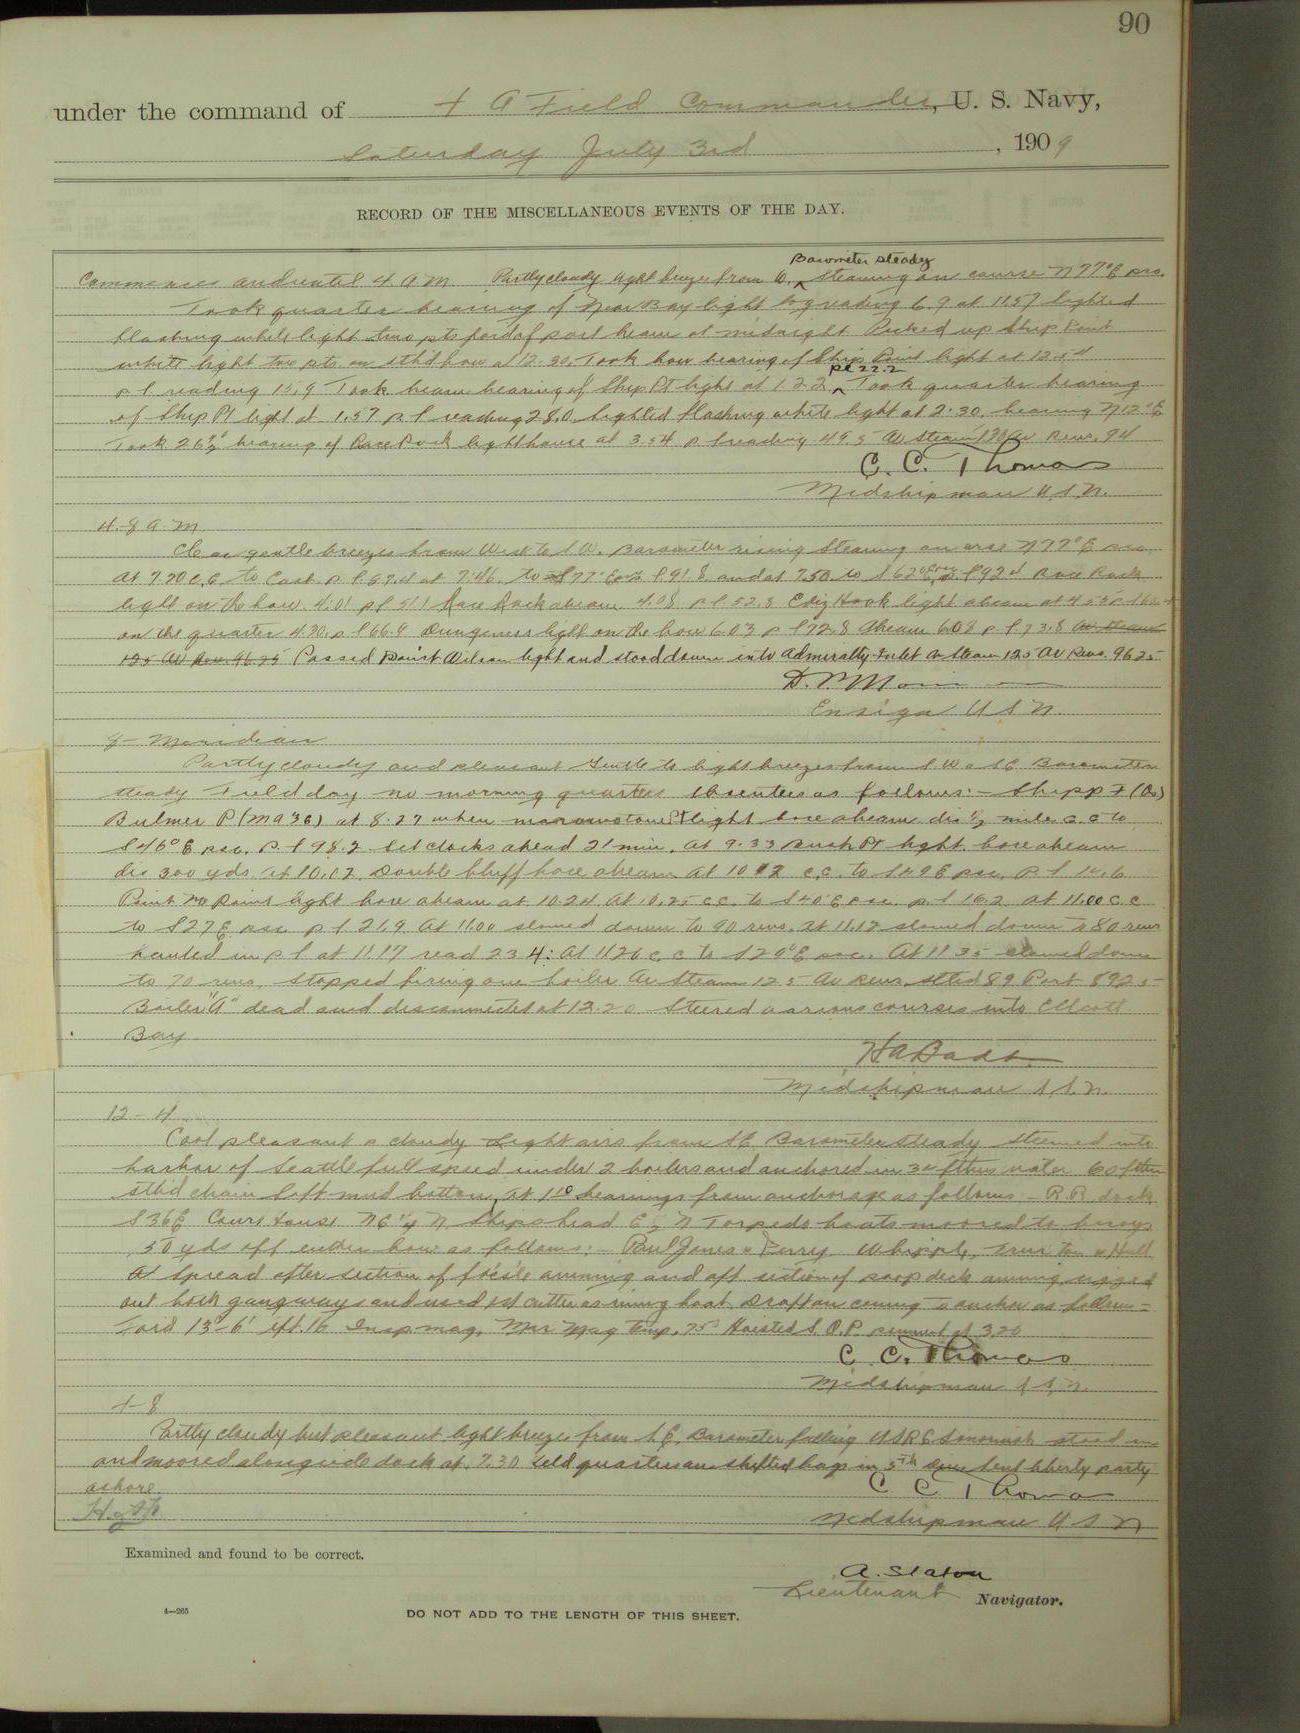 90
under the command of F A Field Commander, U. S. Navy,
Saturday July 3rd, 1909
RECORD OF THE MISCELLANEOUS EVENTS OF THE DAY.
Barometer steady
Commences and until 4 A M Partly cloudy light breeze from W. ^ steaming on course N 77° E psc.
Took quarter bearing of Neah Bay light log reading 6.9 at 11.57 lighted
flashing white light two pts ford of port beam at midnight Picked up Ship Point
white light two pts. on stb'd bow at 12.30. Took bow bearing of Ship Point light at 12.54
pl 22.2
p l reading 15.9 Took beam bearing of Ship Pt light at 1.22 ^ Took quarter bearing
of Ship Pt light at 1.57 p l reading 28.0 lighted flashing white light at 2.30. bearing N 12° E
Took 26½° bearing of Race Rock lighthouse at 3.54 p l reading 49.5 Av Steam 120 Av Revs. 94
C. C. Thomas
Midshipman U.S.N.
4-8 A M
Clear gentle breezes from West to S W. Barometer rising Steaming on course N 77° E psc.
At 7.20 c.c. to East p l 87.4 at 7.46 to S 77° E psc p l 91.8 and at 7.50 to S 62° E psc p l 92.4 Race Rock
light on the bow 4.01 p l 51.1 Race Rock abeam 4.08 p l 52.8 Ediz Hook light abeam at 4.55 p l
on the quarter 4.20 p l 66.9 Dungeness light on the bow 6.03 p l 72.8 Abeam 6.08 p l 73.8 Av Steam
125 Av Rev 96.25 Passed Point Wilson light and stood down into Admiralty Inlet Av Steam 125 Av Revs. 96.25
Ensign U S N.
8 - Meridian
Partly cloudy and pleasant Gentle to light breezes from S W & S E Barometer
steady Field day no morning quarters Absentees as follows:- Shipp F (Os)
Bulmer P (Matt 3c) at 8.27 when Marrowstone Pt light bore abeam dis ½ mile c.c to
S 46° E psc. p l 98.2 Set clocks ahead 21 min. At 9.33 Bush Pt light bore abeam
dis 300 yds. at 10.02 Double bluff bore abeam At 10 12 c.c. to S 49 E psc. p l 14.6
Point no Point light bore abeam at 10.24 At 10.25 c.c. to S 40° E psc. p. l 16.2 at 11.00 c.c
to S 27 E psc p l 21.9 At 11.00 slowed down to 90 revs. At 11.12 slowed down to 80 revs
hauled in p l at 11.17 read 23.4: At 11.26 c. c to S 20° E psc. At 11 35 slowed down
to 70 revs. stopped firing one boiler Av Steam 125 Av Revs. Stbd 89 Port 892.5
Boiler "A" dead and disconnected at 12.20 Steered various courses into Elliott
Bay
H A Badt
Midshipman U.S.N.
12 - 4
Cool pleasant & cloudy Light airs from S E Barometer steady steamed into
harbor of Seattle full speed under 2 boilers and anchored in 30 fthms water 60 fthm
stb'd chain Soft mud bottom, at 1 10 bearings from anchorage as follows:- R.R. dock
S 36 E Court House N E ¼ N Ships head E ½ N Torpedo boats moored to buoys
50 yds off either bow as follows:- Paul Jones & Perry Whipple, Truxtun & Hull
at spread after section of fo'c'sle awning and aft section of poop deck awning rigged
out both gangways and used 1st cutter as runny boat Draft on coming to anchor as follows:-
Ford 13'-6' aft. 16 Insp mag. Max Mag Temp. 75° Hoisted S.O.P. pennant at 3.20
C. C. Thomas
Midshipman U.S.N.
4-8
Partly cloudy but pleasant light breeze from S.E. Barometer falling U S R C Snohomish stood in
and moored alongside dock at 7.30 Held quarters and shifted bags in 5th Div Sent liberty party
ashore.
C C Thomas
Midshipman U S N
Examined and found to be correct.
A. Staton
Lieutenant Navigator.
4—265
DO NOT ADD TO THE LENGTH OF THIS SHEET.